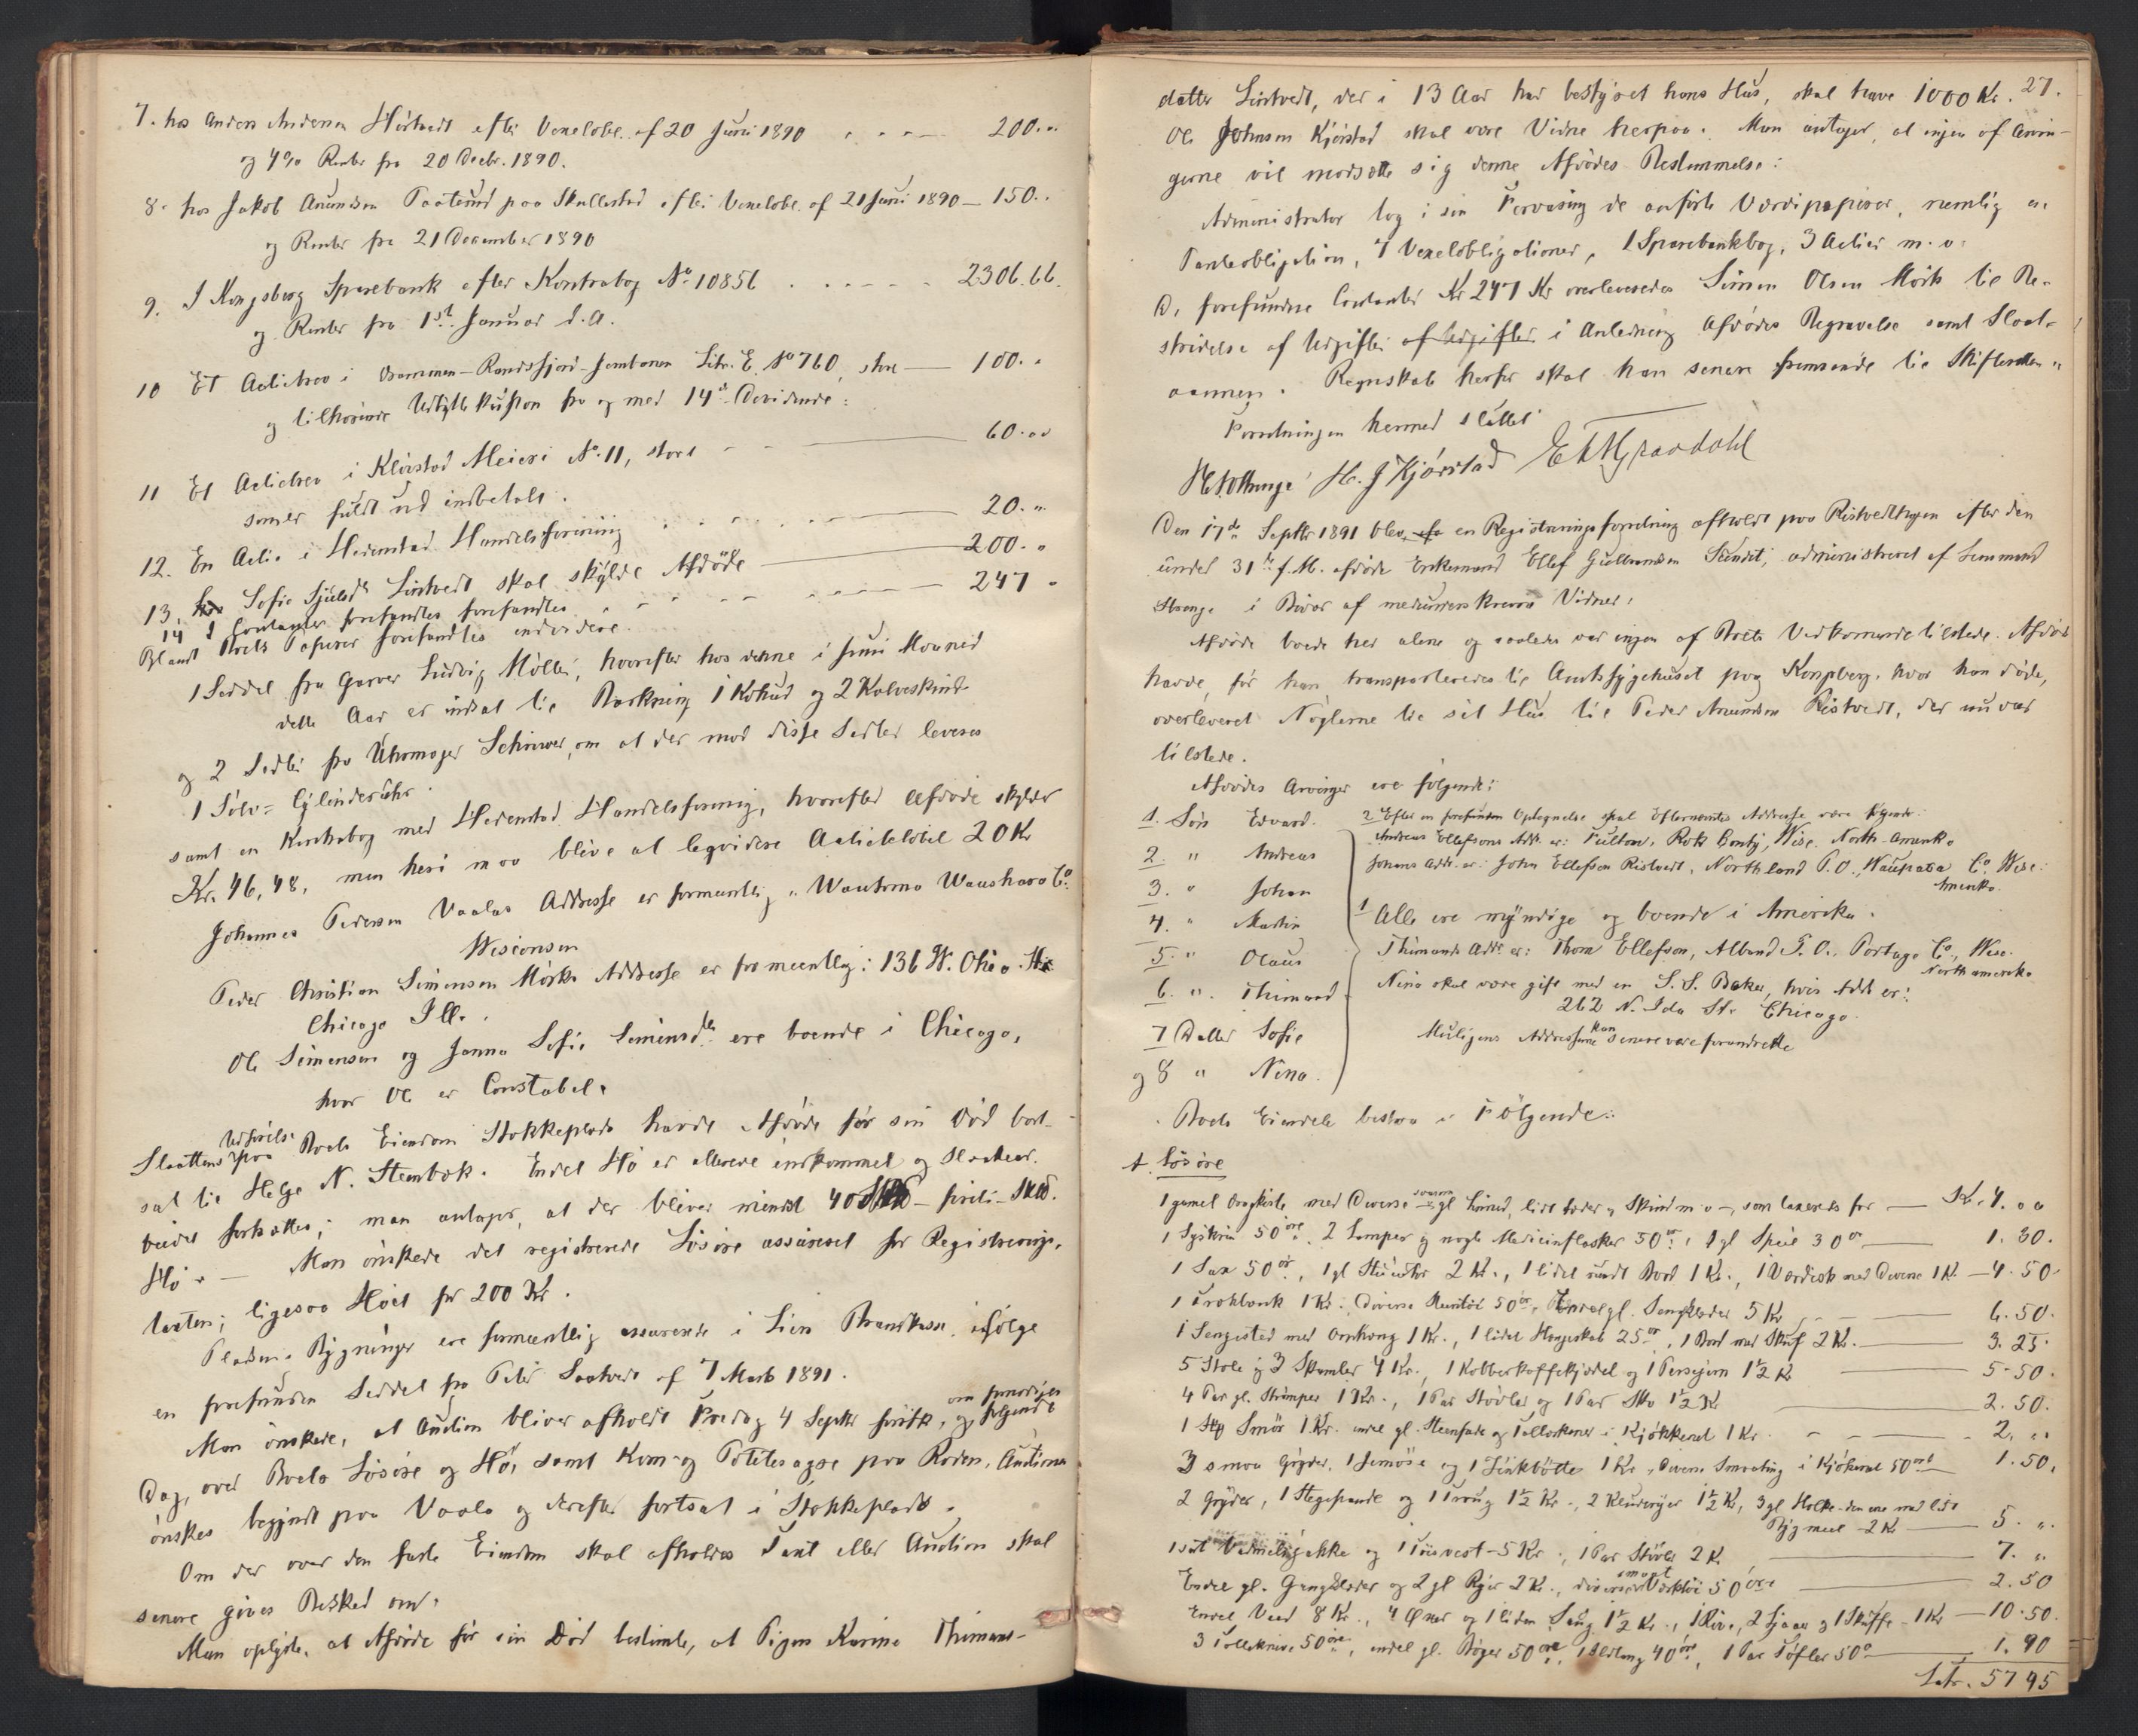 7. hos Anders Andersen Hörtvedt efter Vexelobl. af 20 Juni 1890 200. "
og 4% Renter fra 20 Decbr. 1890.
8. hos Jakob Anundsen paa Skollestad efter Vexelobl. af 21 Juni 1890 — 150. "
og Renter fra 21 December 1890
9. I Kongsberg Sparebank efter Kontrabog No 10856 2306.66.
og Renter fra 1st Januar d. A.
10 Et Actiebrev i Drammen-Randsfjord-Jernbanen Litr. E. No 760, stort — 100. "
og tilhørende Udbyttekupon fra og med 14de Dividende:
11 Et Actiebrev i Kjörstad Meieri No. 11, stort — 60. "
som er fuldt ud indbetalt.
12. En Actie i Hedenstad Handelsforening 20. "
13. Sofie Lintvedt skal skylde Afdöde — 200. "
14 I Contanter forefandtes 247 "
Blandt Boets Papirer forefandtes endvidere.
1 Seddel fra Garver Ludvig Möller, hvorefter hos denne i Juni Maaned
dette Aar er indsat til Barkning 1 Kohud og 2 Kalveskind
og 2 Sedler fra Uhrmager Schiwer, om at der mod disse Sedler leveres
1 Sölv- Cylinderuhr.
samt en Kontrabog med Hedenstad Handelsforening, hvorefter Afdöde skylder
Kr. 46,48, men heri maa blive at leqvidere Actiebelöbet 20 Kr
Johannes Pedersen Vaalas Addresse er formentlig " Wautoma Waushara Co.
Wisconsen
Peder Christian Simensen Mörks Addresse er formeentlig: 136 W. Ohio. Str
Chicago Ill.
Ole Simensen og Janna Sofie Simensdtr ere boende i Chicago,
hvor Ole er Constabel.
Slaattens Udförelse paa Boets Eiendom Stokkeplads havde Afdöde för sin Död bort-
sat til Helge N. Stenbok. Endel Hö er allerede indkommet og Slaatear-
beidet fortsættes; man antager, at der bliver mindst 40 — förti - Skld.
Hö. — Man önskede det registrerede Lösöre assureret for Registrerings-
taxten; ligesaa Höet for 200 Kr.
Pladsens Bygninger ere formeentlig assurerede i Liens Brandkasse ifölge
en forefunden Seddel fra Peter Saatvedt af 7 Marts 1891.
Man önskede, at Auction bliver afholdt Fredag 4 Septbr förstk., og om fornödiges følgende
Dag, over Boets Lösöre og Hö, samt Korn- og Potetesagre paa Roden. Auctionen
önskes begyndt paa Vaala og derefter fortsat i Stokkeplads.
Om der over den faste Eiendom skal afholdes Taxt eller Auction skal
senere gives Besked om.
Man oplyste, at Afdöde för sin Död bestemte, at Pigen Karine Thimans-
27.
datter Lintvedt, der i 13 Aar har bestyret hans Hus, skal have 1000 Kr.
Ole Johnsen Kjörstad skal være Vidne herpaa. Man antager, at ingen af Arvin-
gerne vil modsætte sig denne Afdödes Bestemmelse:
Administrator tog i sin Forvaring de anförte Værdipapirer, nemlig en
Panteobligation, 7 Vexelobligationer, 1 Sparebankbog, 3 Actier m. v.
De forefundne Contanter Kr 247 Kr overleveredes Simen Olsen Mörk til Be-
stridelse af Udgifter af Udgifter i Anledning Afdödes Begravelse samt Slaat-
aannen. Regnskab herfor skal han senere fremsende til Skifteretten "
Forretningen hermed sluttet
H. J Kjörstad
Den 17de Septbr 1891 blev en Registreringsforretning afholdt paa Ristvedthagen efter den
under 31te f. M. afdöde Enkemand Ellef Gulbrandsen administreret af Lensmand
Strange i Bivær af medunderskrevne Vidner:
Afdöde boede her alene og saaledes var ingen af Boets Vedkommende tilstede. Afdöde
havde, för han transporteredes til Amtssygehuset paa Kongsberg, hvor han döde,
overleveret Nöglerne til sit Hus til Peder Anundsen Ristvedt, der nu var
tilstede.
Afdödes Arvinger ere følgende:
1. Sön Edvard.
2. " Andreas
3. " Johan
4. " Martin
5. " Olaus
6. " Thimand
7 Datter Sofie
og 8 " Nina.
2 Efter en forefunden Optegnelse skal Efternævntes Addresse være følgende:
Andreas Ellefsens Adr. er: Fulton, Rock County, Wisc. North-Amerika
Johans Adr. er: John Ellefsen Ristvedt, Northland P.O., Waupaca Co. Wisc.
Amerika.
1 Alle ere myndige og boende i Amerika.
Thimands Adr. er: Thom Ellefsen, Alband P.O. Portage Co., Wisc.
North amerika
Nina skal være gift med en S. S. Baker, hvis Adr er:
262 N. Ida Str Chicago.
Muligens Addresserne kan senere være forandrede
Boets Eiendele bestaa i Følgende:
A. Lösöre
1 gammel Dragkiste med Diverse saasom gl. lidt Læder og Skind m v, som taxeredes for — Kr. 4. " "
1 Syskrin 50 öre. 2 Lamper og nogle Medicinflasker 50 ør, 1 gl Speil 30 ør — 1. 30.
1 Sax 50 ör., 1 gl Stueuhr 2 Kr., 1 lidet rundt Bord 1 Kr., 1 Vardisk med Diverse 1 Kr — 4. 50.
1 Trækbænk 1 Kr. Diverse 50 ör, Endel gl. Sengklæder 5 Kr — 6. 50.
1 Sengested med Omhæng 1 Kr., 1 lidet Hængeskab 25 ør, 1 Bord med Skuf 2 Kr. — 3. 25.
5 Stole og 3 Skamler 4 Kr., 1 Kobberkaffekjedel og 1 Persejern 1½ Kr — 5. 50.
4 Par gl. Strömper 1 Kr., 1 Par Stövler og 1 Par Sko 1½ Kr — 2. 50.
1 Smör 1 Kr. endel gl. Steenfade og Tallerkener i Kjøkkenet 1 Kr. — 2. "
3 smaa Gryder, og 1 1 Kr., Diverse Smaating i Kjökkenet 50 öre — 1. 50.
2 Gryder, 1 Stegepande og 1 Traug 1½ Kr., 2 1½ Kr, 3 gl Holke - den ene med lidt
Bygmeel 2 Kr — 5. "
1 sæt Vadmelsjakke og 1 5 Kr., 1 Par Stövler 2 Kr — 7. "
Endel gl. Gangklæder og 2 gl 2 Kr., diverse smaat Værktöi 50 öre — 2. 50
Endel Veed 8 Kr., 4 Öxer og 1 liden Saug 1½ Kr., 1 Rive, 2 Ljaaer og 1 Skuffe - 1 Kr — 10. 50.
3 Tolleknive 50 öre, endel gl. Böger 50 öre, 1 Ildtang 40 öre, 1 Par Töfler 50 ø — 1. 90
Latr. 57 95